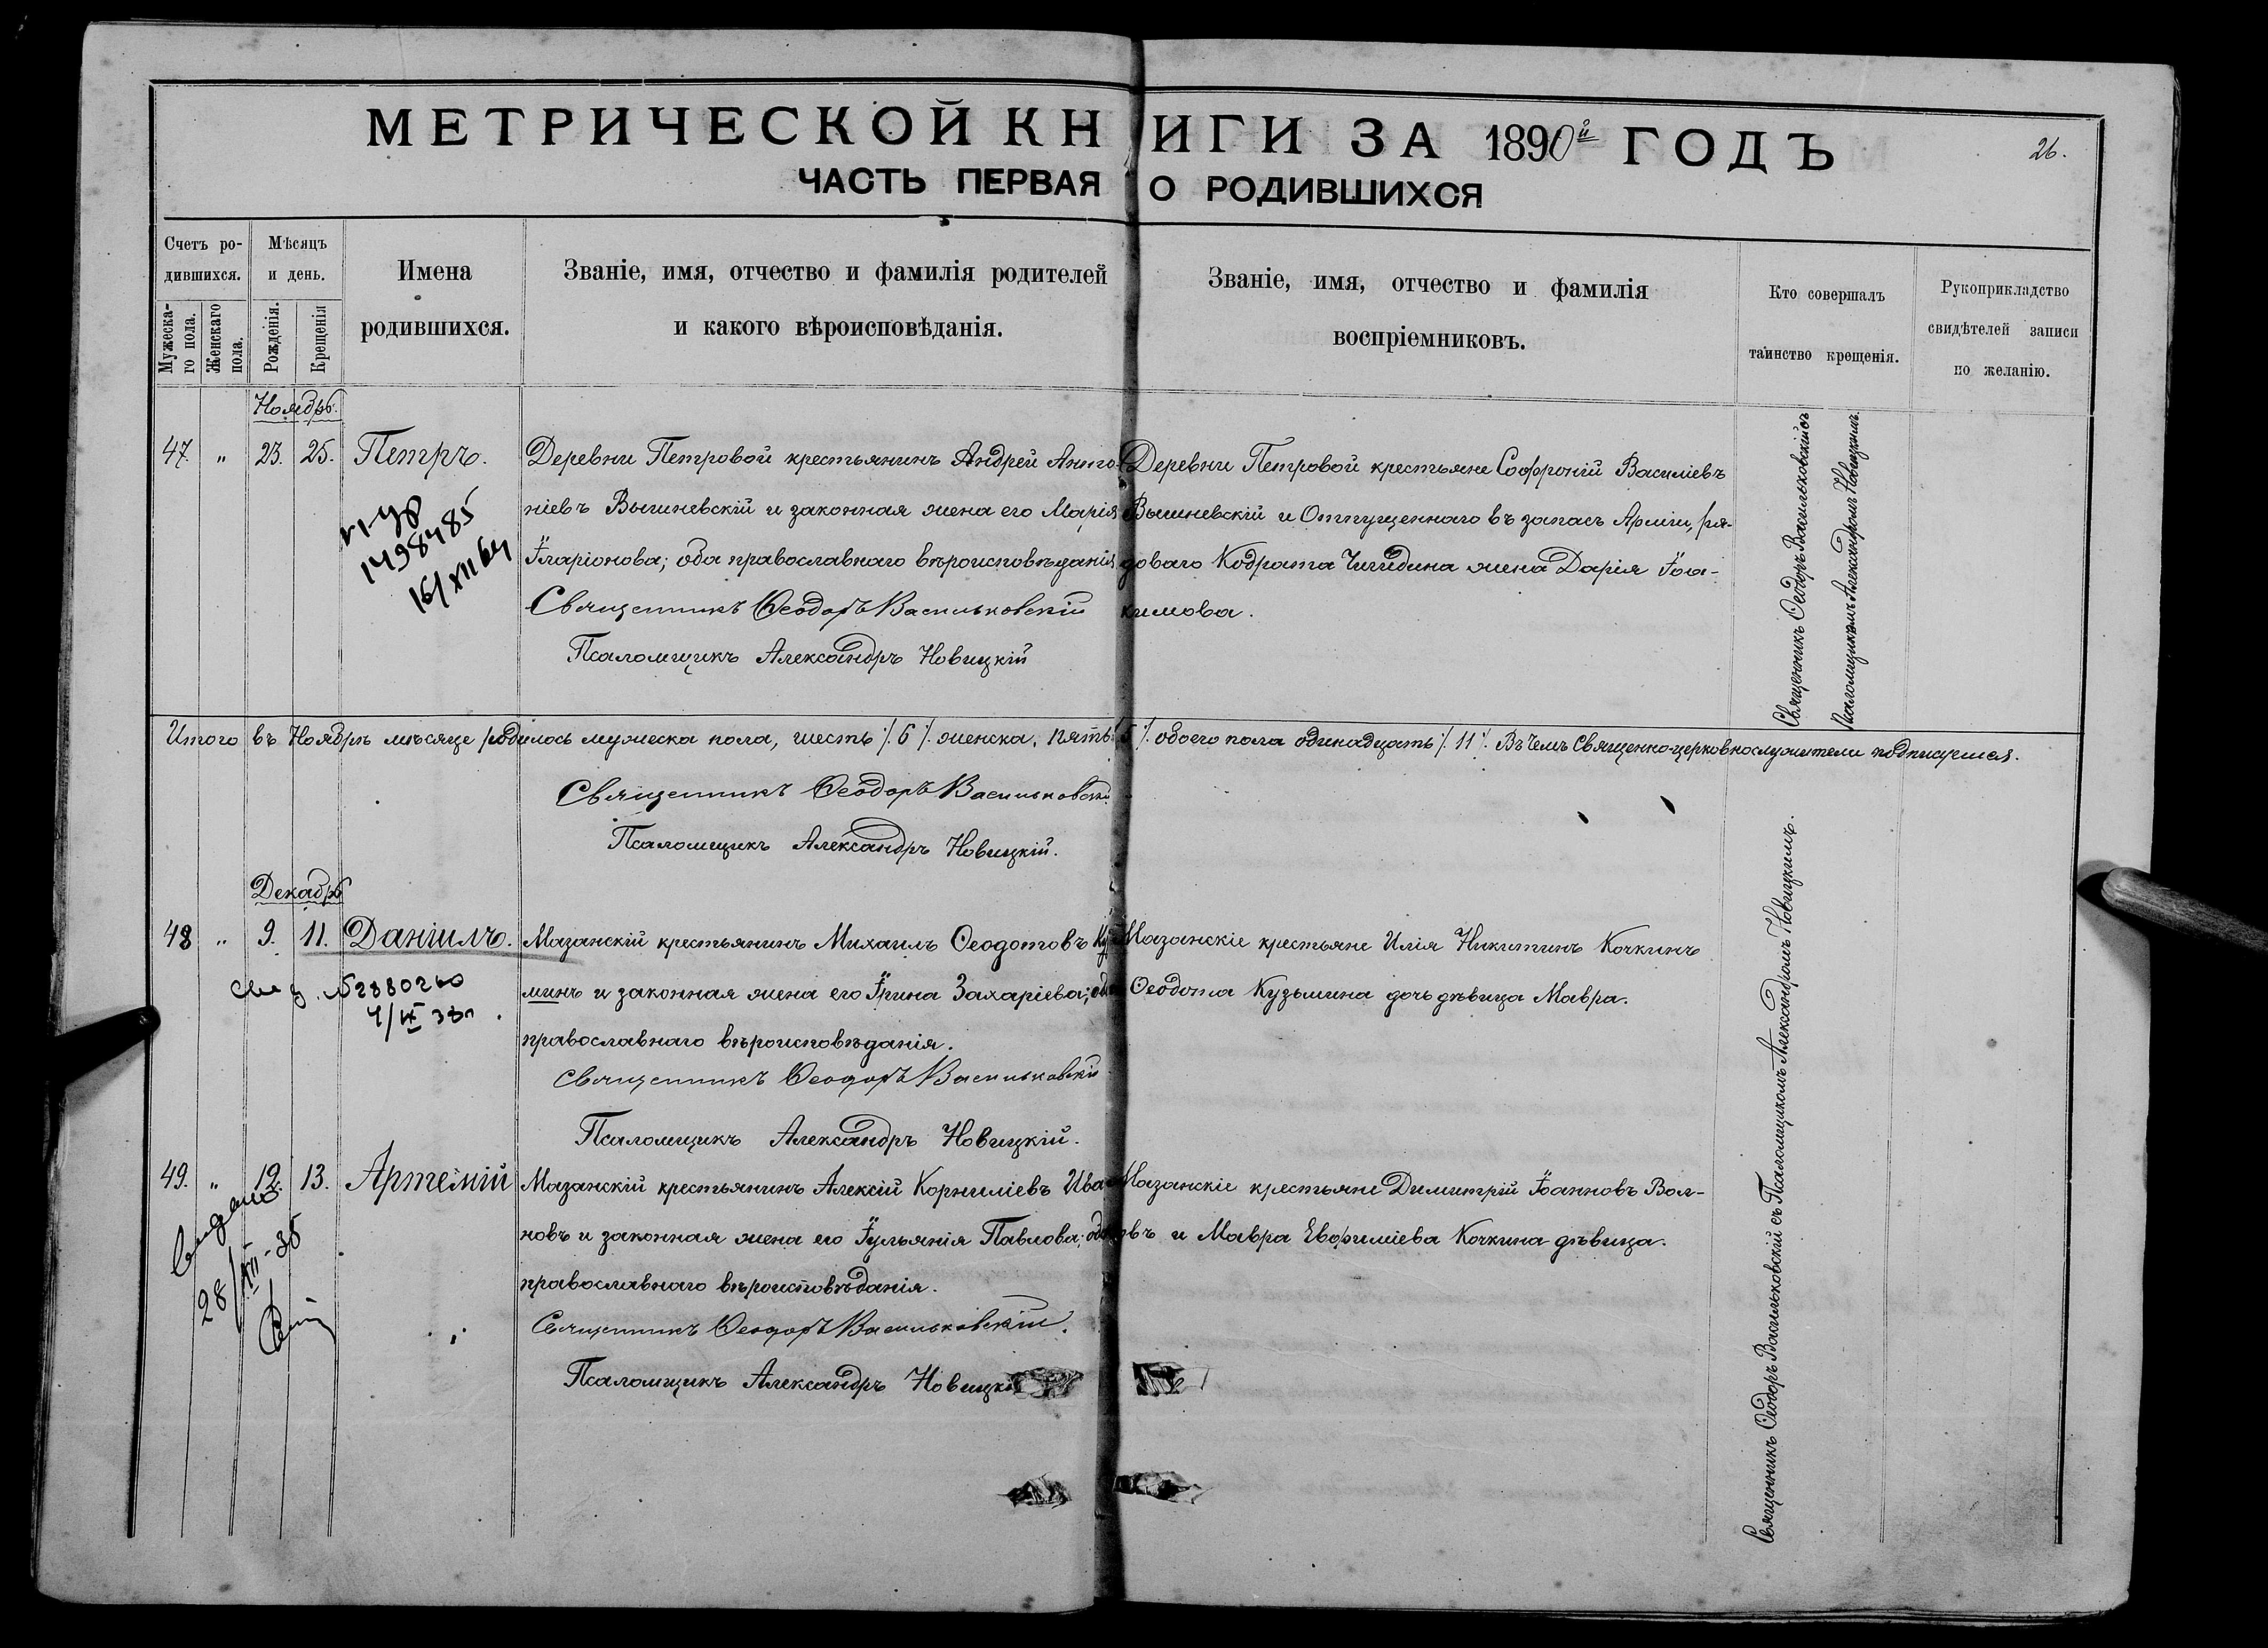 МЕТРИЧЕСКОЙ КНИГИ ЗА 1890й ГОДЪ
26.
ЧАСТЬ ПЕРВАЯ О РОДИВШИХСЯ
Счетъ ро-
дившихся.
Мужеска-
го пола.
Женскаго
пола.
Мѣсяцъ
и день.
Рожденія.
Крещенія
Имена
родившихся.
Званіе, имя, отчество и фамилія родителей
и какого вѣроисповѣданія.
Званіе, имя, отчество и фамилія
воспріемниковъ.
Кто совершалъ
таинство крещенія.
Рукоприкладство
свидѣтелей записи
по желанію.
Ноябрь.
47. „ 23. 25. Петръ.
1498485
16/XII 64
Деревни Петровой крестьянинъ Андрей Анто-
ніевъ Вышневскій и законная жена его Марія
Іларіонова; оба православнаго вѣроисповѣданія
Священникъ Ѳеодоръ Васильковскій
Псаломщикъ Александръ Новицкій
Деревни Петровой крестьяне Софроній Василіевъ
Вышневскій и Отпущеннаго въ запасъ Арміи, ря-
доваго Кодрата Чигидина жена Дарія Іоа-
кимова.
Священникъ Ѳеодоръ Васильковскій съ
Псаломщикомъ Александромъ Новицкимъ.
Итого въ Ноябрѣ мѣсяце родилось мужеска пола, шесть ./. 6 ./. женска, пять ./. 5 ./. обоего пола одинадцать ./. 11 ./. Въ чемъ Священно-церковнослужители подписуемся.
Священникъ Ѳеодоръ Васильковскій
Псаломщикъ Александръ Новицкій.
Декабрь
48 „ 9. 11. Даніилъ.
4/IX 38г.
Мазанскій крестьянинъ Михаилъ Ѳеодотовъ Кузь-
минъ и законная жена его Ірина Захаріева; оба
православнаго вѣроисповѣданія.
Священникъ Ѳеодоръ Васильковскій
Псаломщикъ Александръ Новицкій.
Мазанскіе крестьяне Илія Никитинъ Кочкинъ
Ѳеодота Кузьмина дочь дѣвица Мавра.
49. „ 12. 13. Артемій
Выдано
28/XII-35
Мазанскій крестьянинъ Алексій Корниліевъ Ива-
новъ и законная жена его Іульянія Павлова; оба
православнаго вѣроисповѣданія.
Священникъ Ѳеодоръ Васильковскій.
Псаломщикъ Александръ Новицкій
Мазанскіе крестьяне Димитрій Іоанновъ Вол-
овъ и Мавра Евфиміева Кочкина дѣвица.
Священникъ Ѳеодоръ Васильковскій съ Псаломщикомъ Александромъ Новицкимъ.